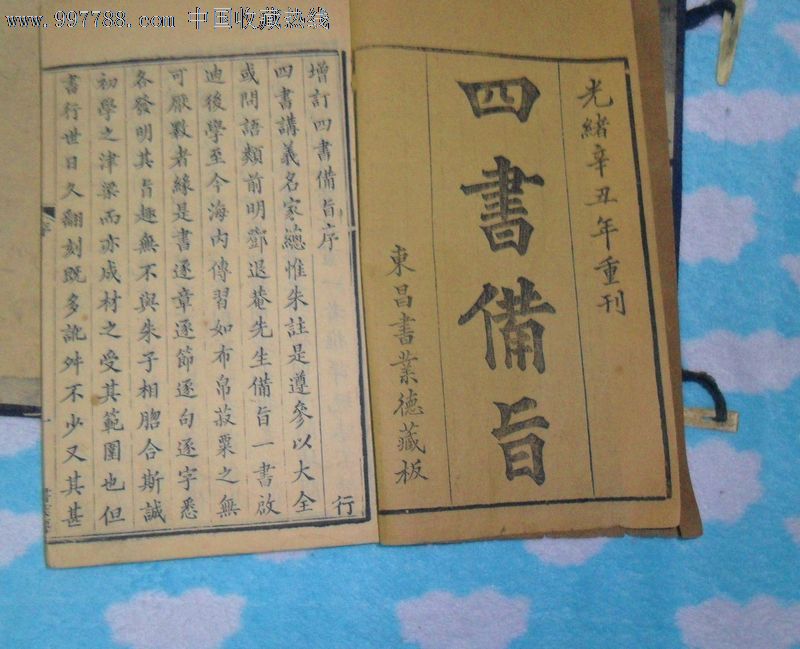 www.997788.com 中国收藏热线
光緒辛丑年重刊
四書備旨
東昌書業德藏板
增訂四書備旨序
四書講義名家總惟朱註是遵參以大全
或問語類前明鄧退菴先生備旨一書啟
迪後學至今海內傳習如布帛菽粟之無
可厭斁者緣是書逐章逐節逐句逐字悉
各發明其旨趣無不與朱子相脗合斯誠
初學之津梁而亦成材之受其範圍也但
書行世日久翻刻既多訛舛不少又其甚
行
序
一